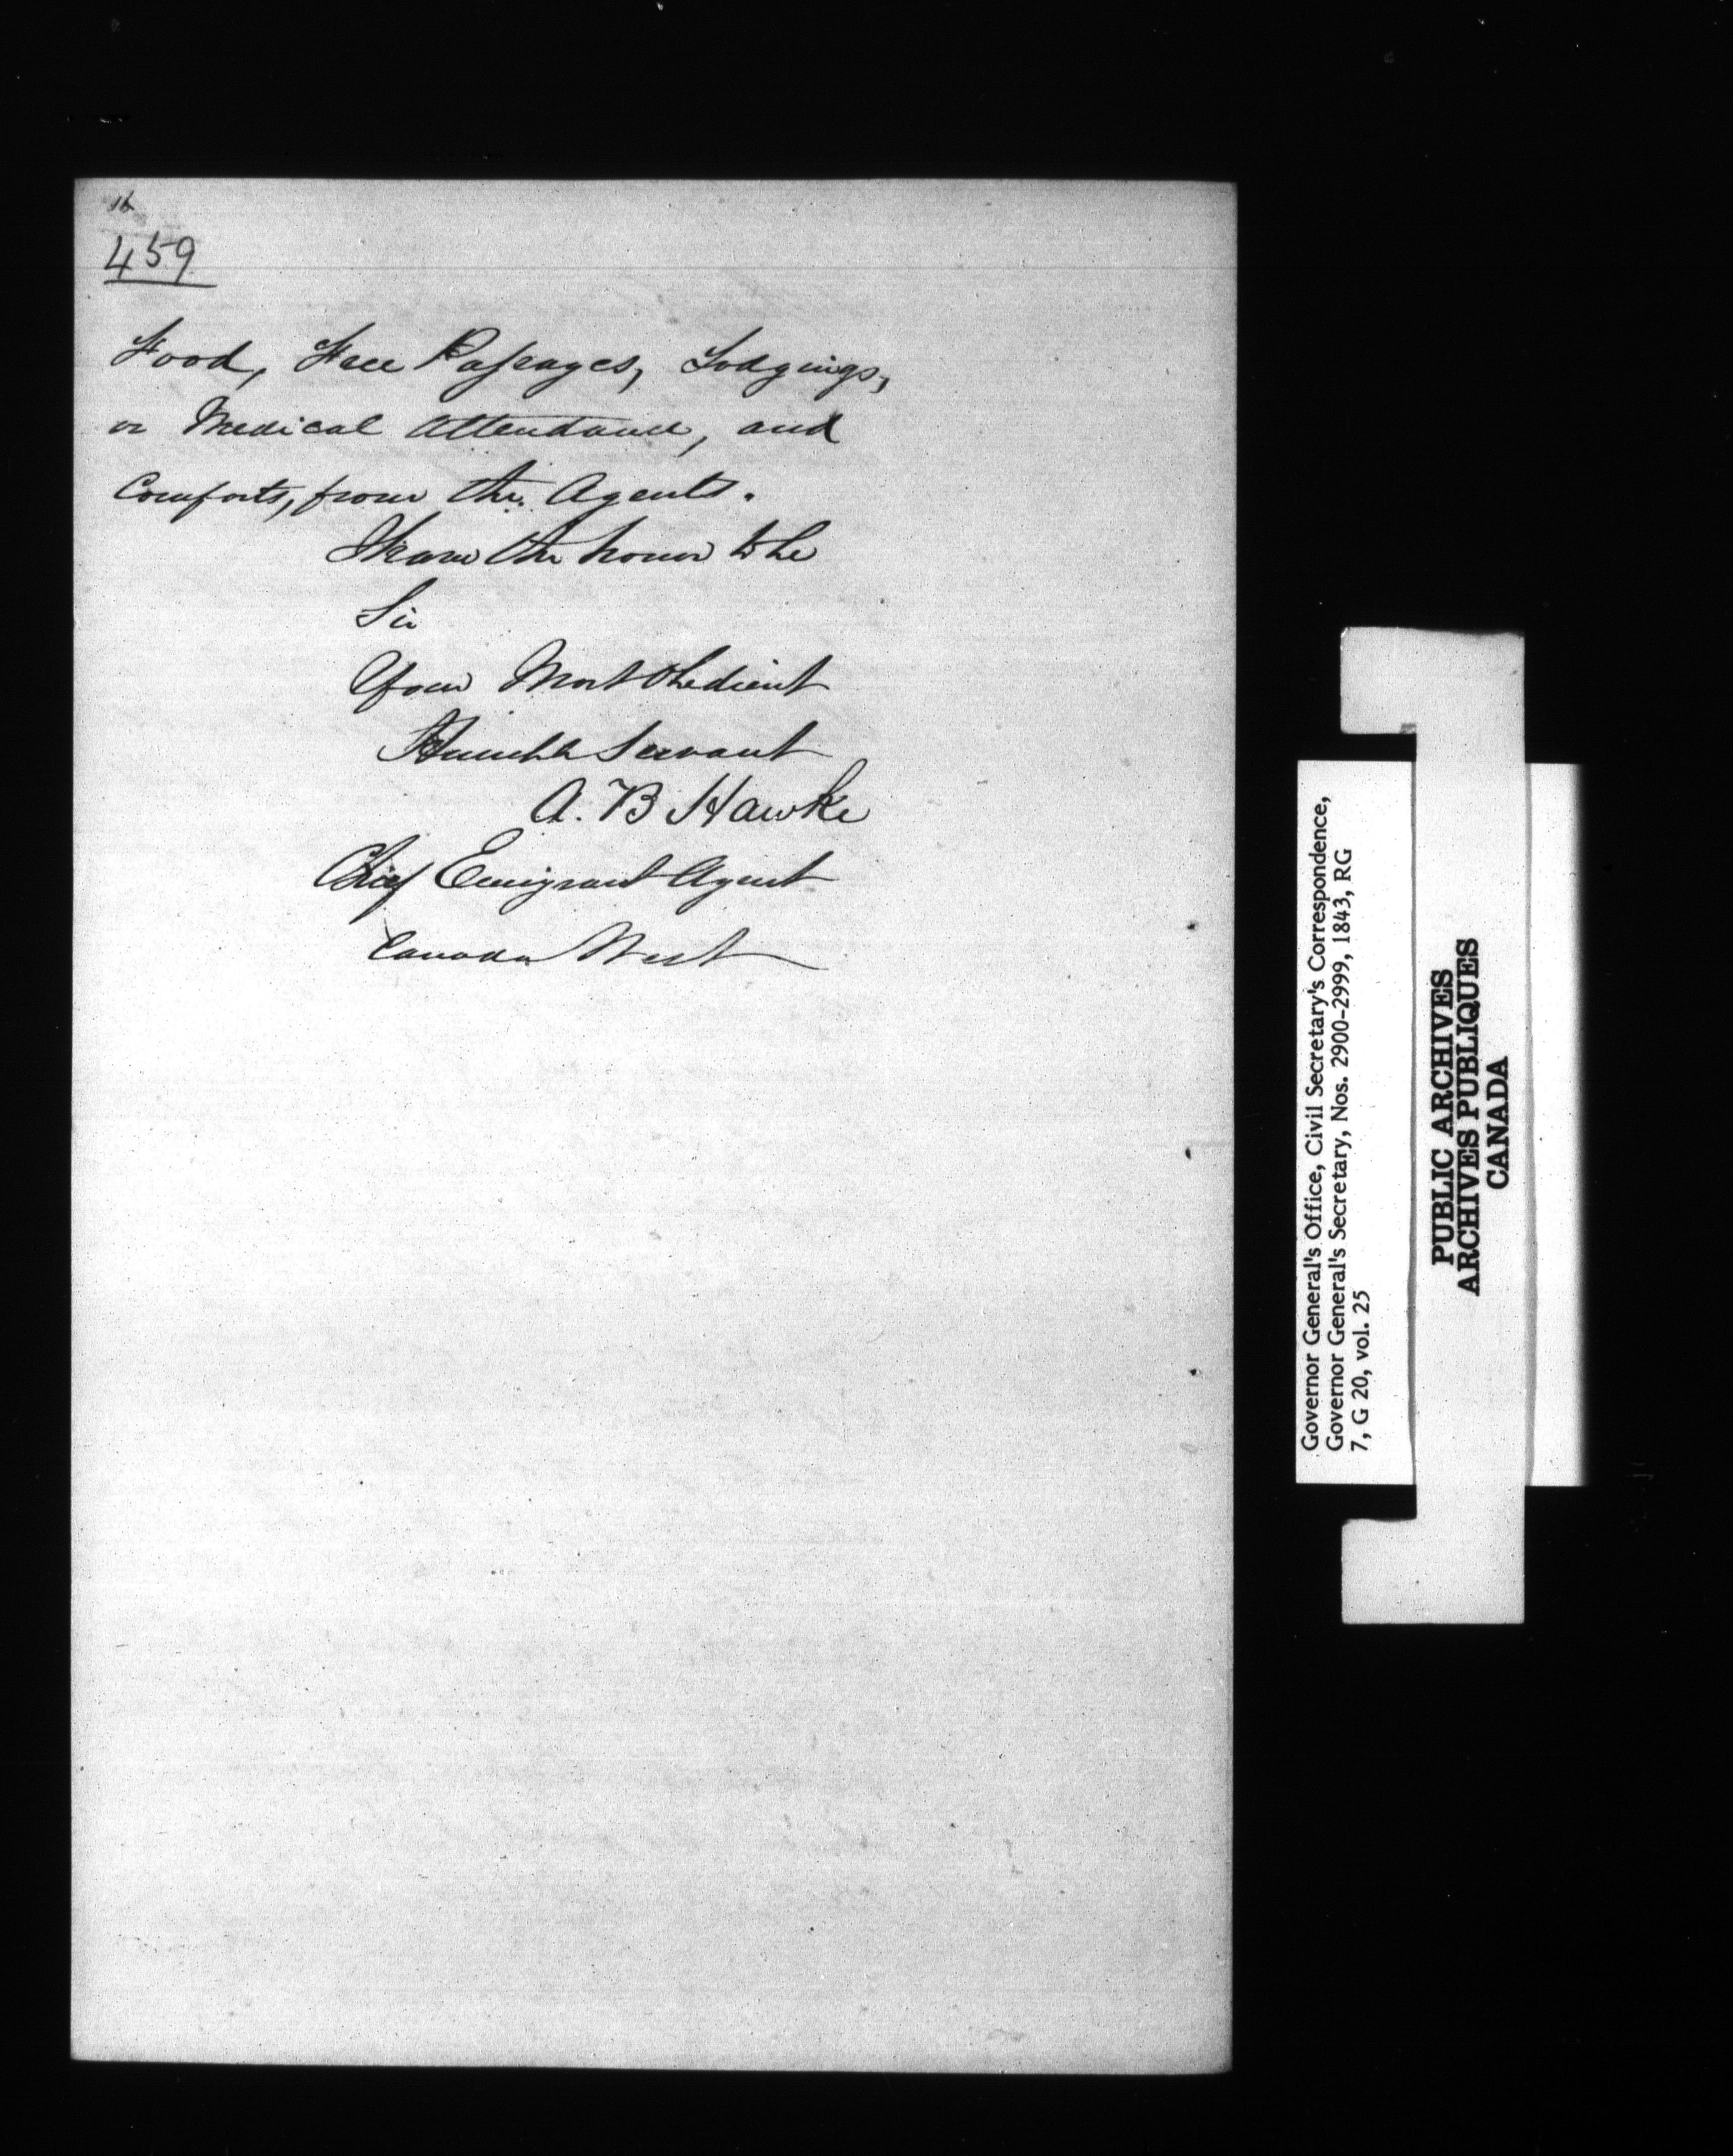 16
459
Food, Free Passages, Lodgings,
or Medical Attendance, and
Comforts, from the Agents.
I have the honor to be
Sir
Your Most Obedient
Humble Servant
A. B Hawke
Chief Emigrant Agent
Canada West
Governor General's Office, Civil Secretary's Correspondence,
Governor General's Secretary, Nos. 2900-2999, 1843, RG
7, G 20, vol. 25
PUBLIC ARCHIVES
ARCHIVES PUBLIQUES
CANADA